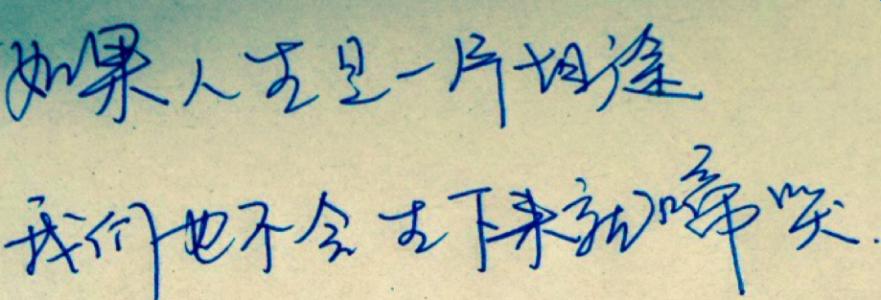 如果人生是一片坦途
我们也不会生下来就啼哭.